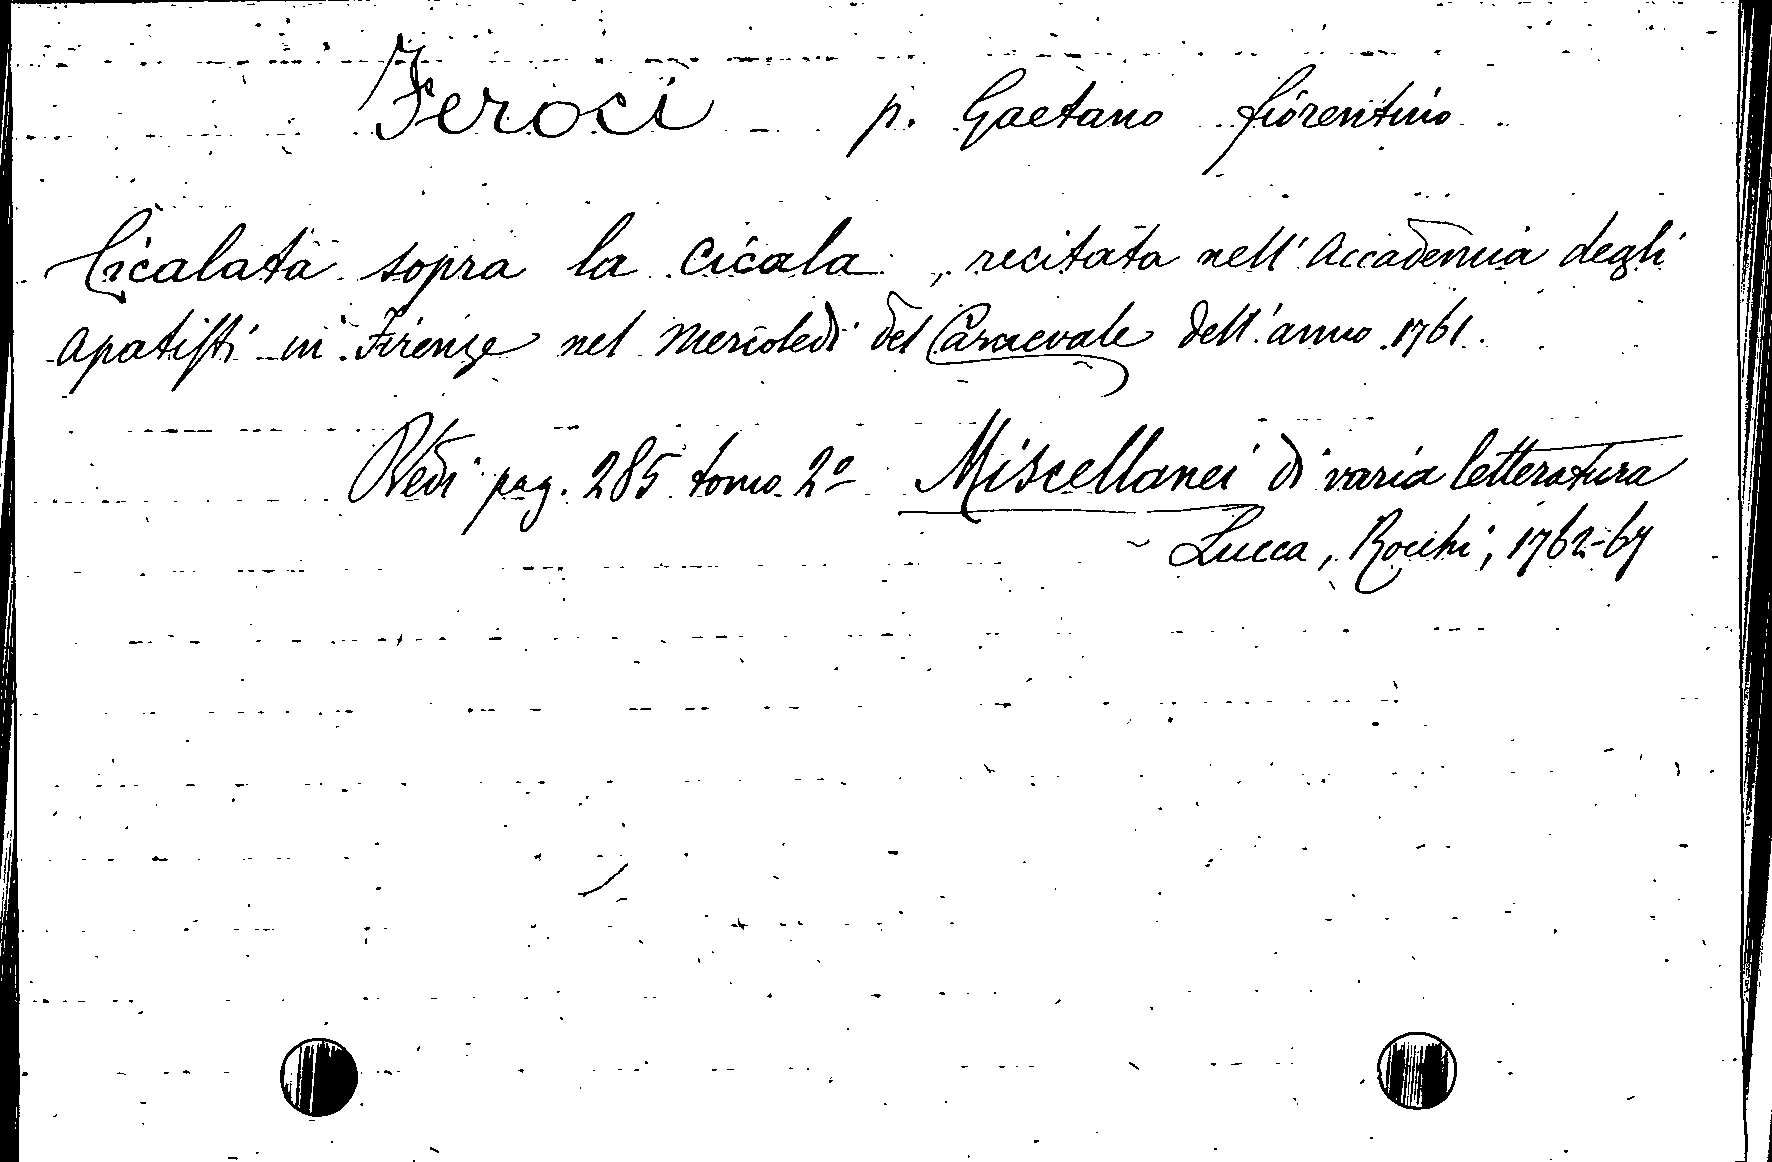 Feroci p. Gaetano fiorentino
Cicalata sopra la cicala, recitata nell'Accademia degli
Apatisti in Firenze nel Mercoledi del Carnevale dell'anno 1761.
Vedi pag. 285 tomo 2º Miscellanei di varia letteratura
Lucca, Rocchi, 1762-67